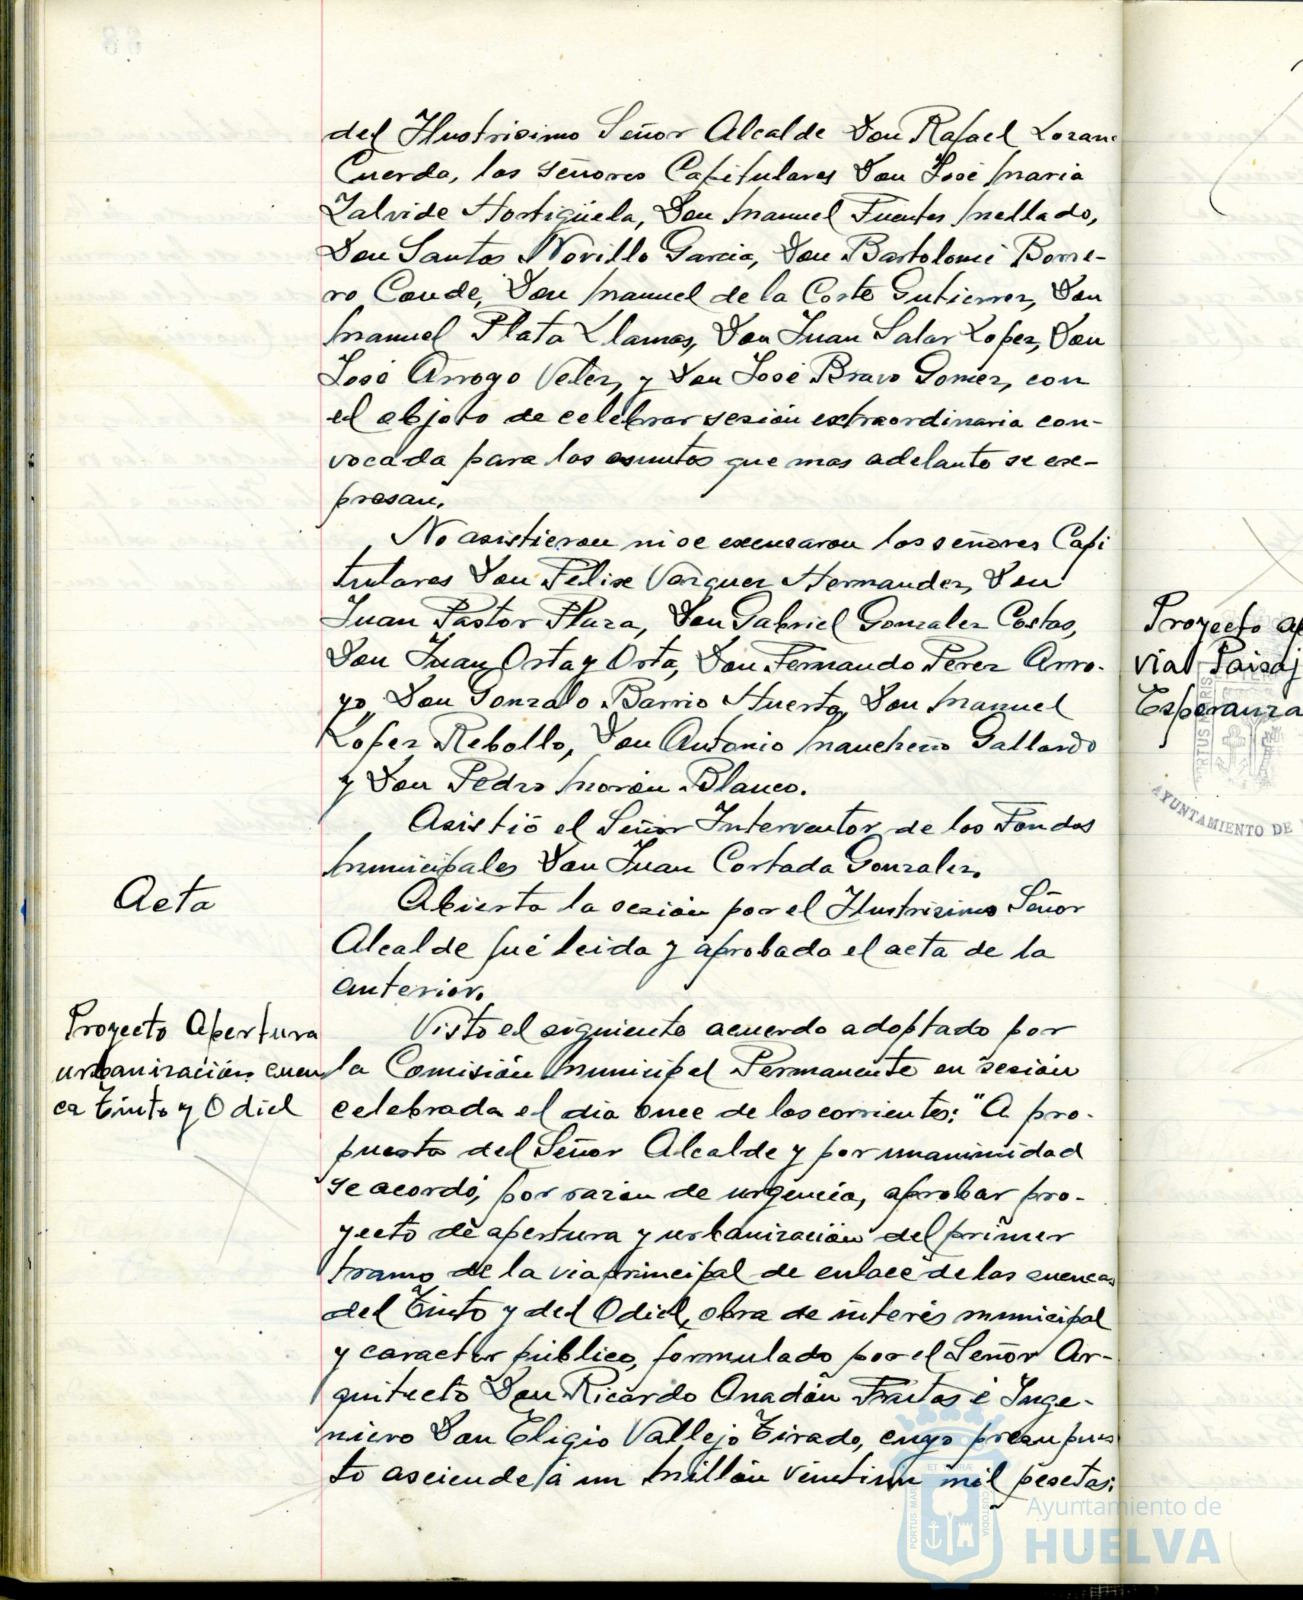 del Ilustrisimo Señor Alcalde Don Rafael Lozano
Cuerda, los señores Capitulares Don José Maria
Zalvide Hortigüela, Don Manuel Fuentes Mellado,
Don Santos Novillo Garcia, Don Bartolomé Borre-
ro Conde, Don Manuel de la Corte Gutierrez, Don
Manuel Plata Llamas, Don Juan Salar Lopez, Don
José Arroyo Velez, y Don José Bravo Gomez, con
el objeto de celebrar sesión extraordinaria con-
vocada para los asuntos que mas adelante se ex-
presan.
No asistieron ni se excusaron los señores Capi
tulares Don Felix Vazquez Hernandez, Don
Juan Pastor Plaza, Don Gabriel Gonzalez Costas,
Don Juan Orta y Orta, Don Fernando Perez Arro-
yo, Don Gonzalo Barrio Huerta, Don Manuel
Lopez Rebollo, Don Antonio Mancheño Gallardo
y Don Pedro Morón Blanco.
Asistió el Señor Interventor de los Fondos
Municipales Don Juan Cortada Gonzalez.
Acta
Abierta la sesión por el Ilustrisimo Señor
Alcalde fué leida y aprobada el acta de la
anterior.
Proyecto Apertura
urbanización cuen
ca Tinto y Odiel
Visto el siguiente acuerdo adoptado por
la Comisión Municipal Permanente en sesión
celebrada el dia once de los corrientes: "A pro-
puesta del Señor Alcalde y por unanimidad
se acordó, por razón de urgencia, aprobar pro-
yecto de apertura y urbanización del primer
tramo de la via principal de enlace de las cuencas
del Tinto y del Odiel, obra de interés municipal
y caracter público, formulado por el Señor Ar-
quitecto Don Ricardo Anadón Frutos é Inge-
niero Don Eligio Vallejo Tirado, cuyo presupues
to asciende á un millón veintiun mil pesetas;
Proyecto ap
via Paisaj
Esperanza
AYUNTAMIENTO DE
PORTUS MARIS
ET TERRÆ
CUSTODIA
Ayuntamiento de
HUELVA